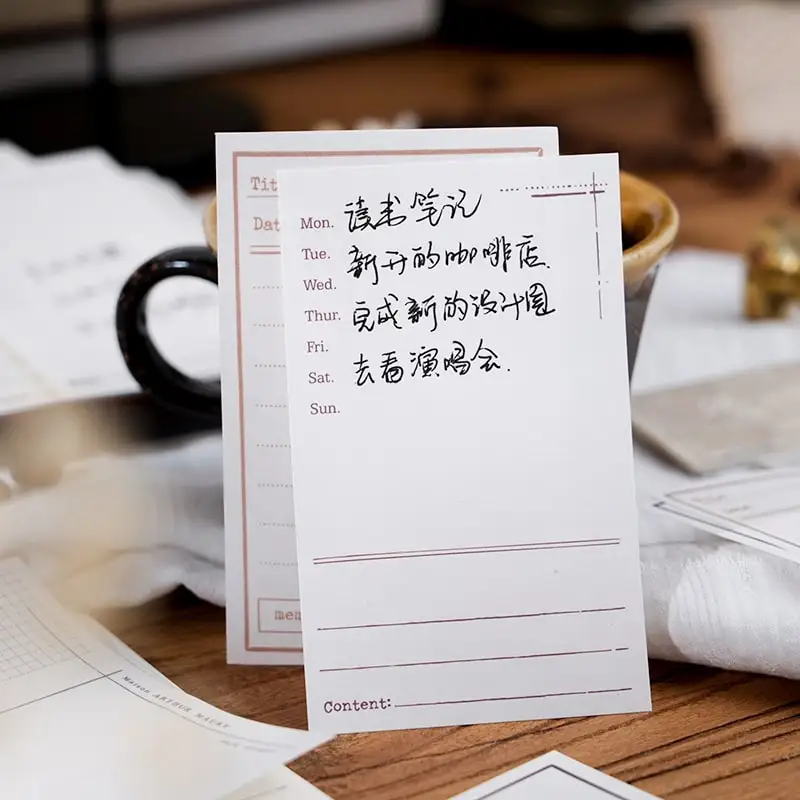 Tit
Dat
Mon. 读书笔记
Tue.
新开的咖啡店.
Wed.
Thur. 完成新的设计图
Fri.
Sat. 去看演唱会.
Sun.
mem
Content:
Maison ARTHUR MAURY